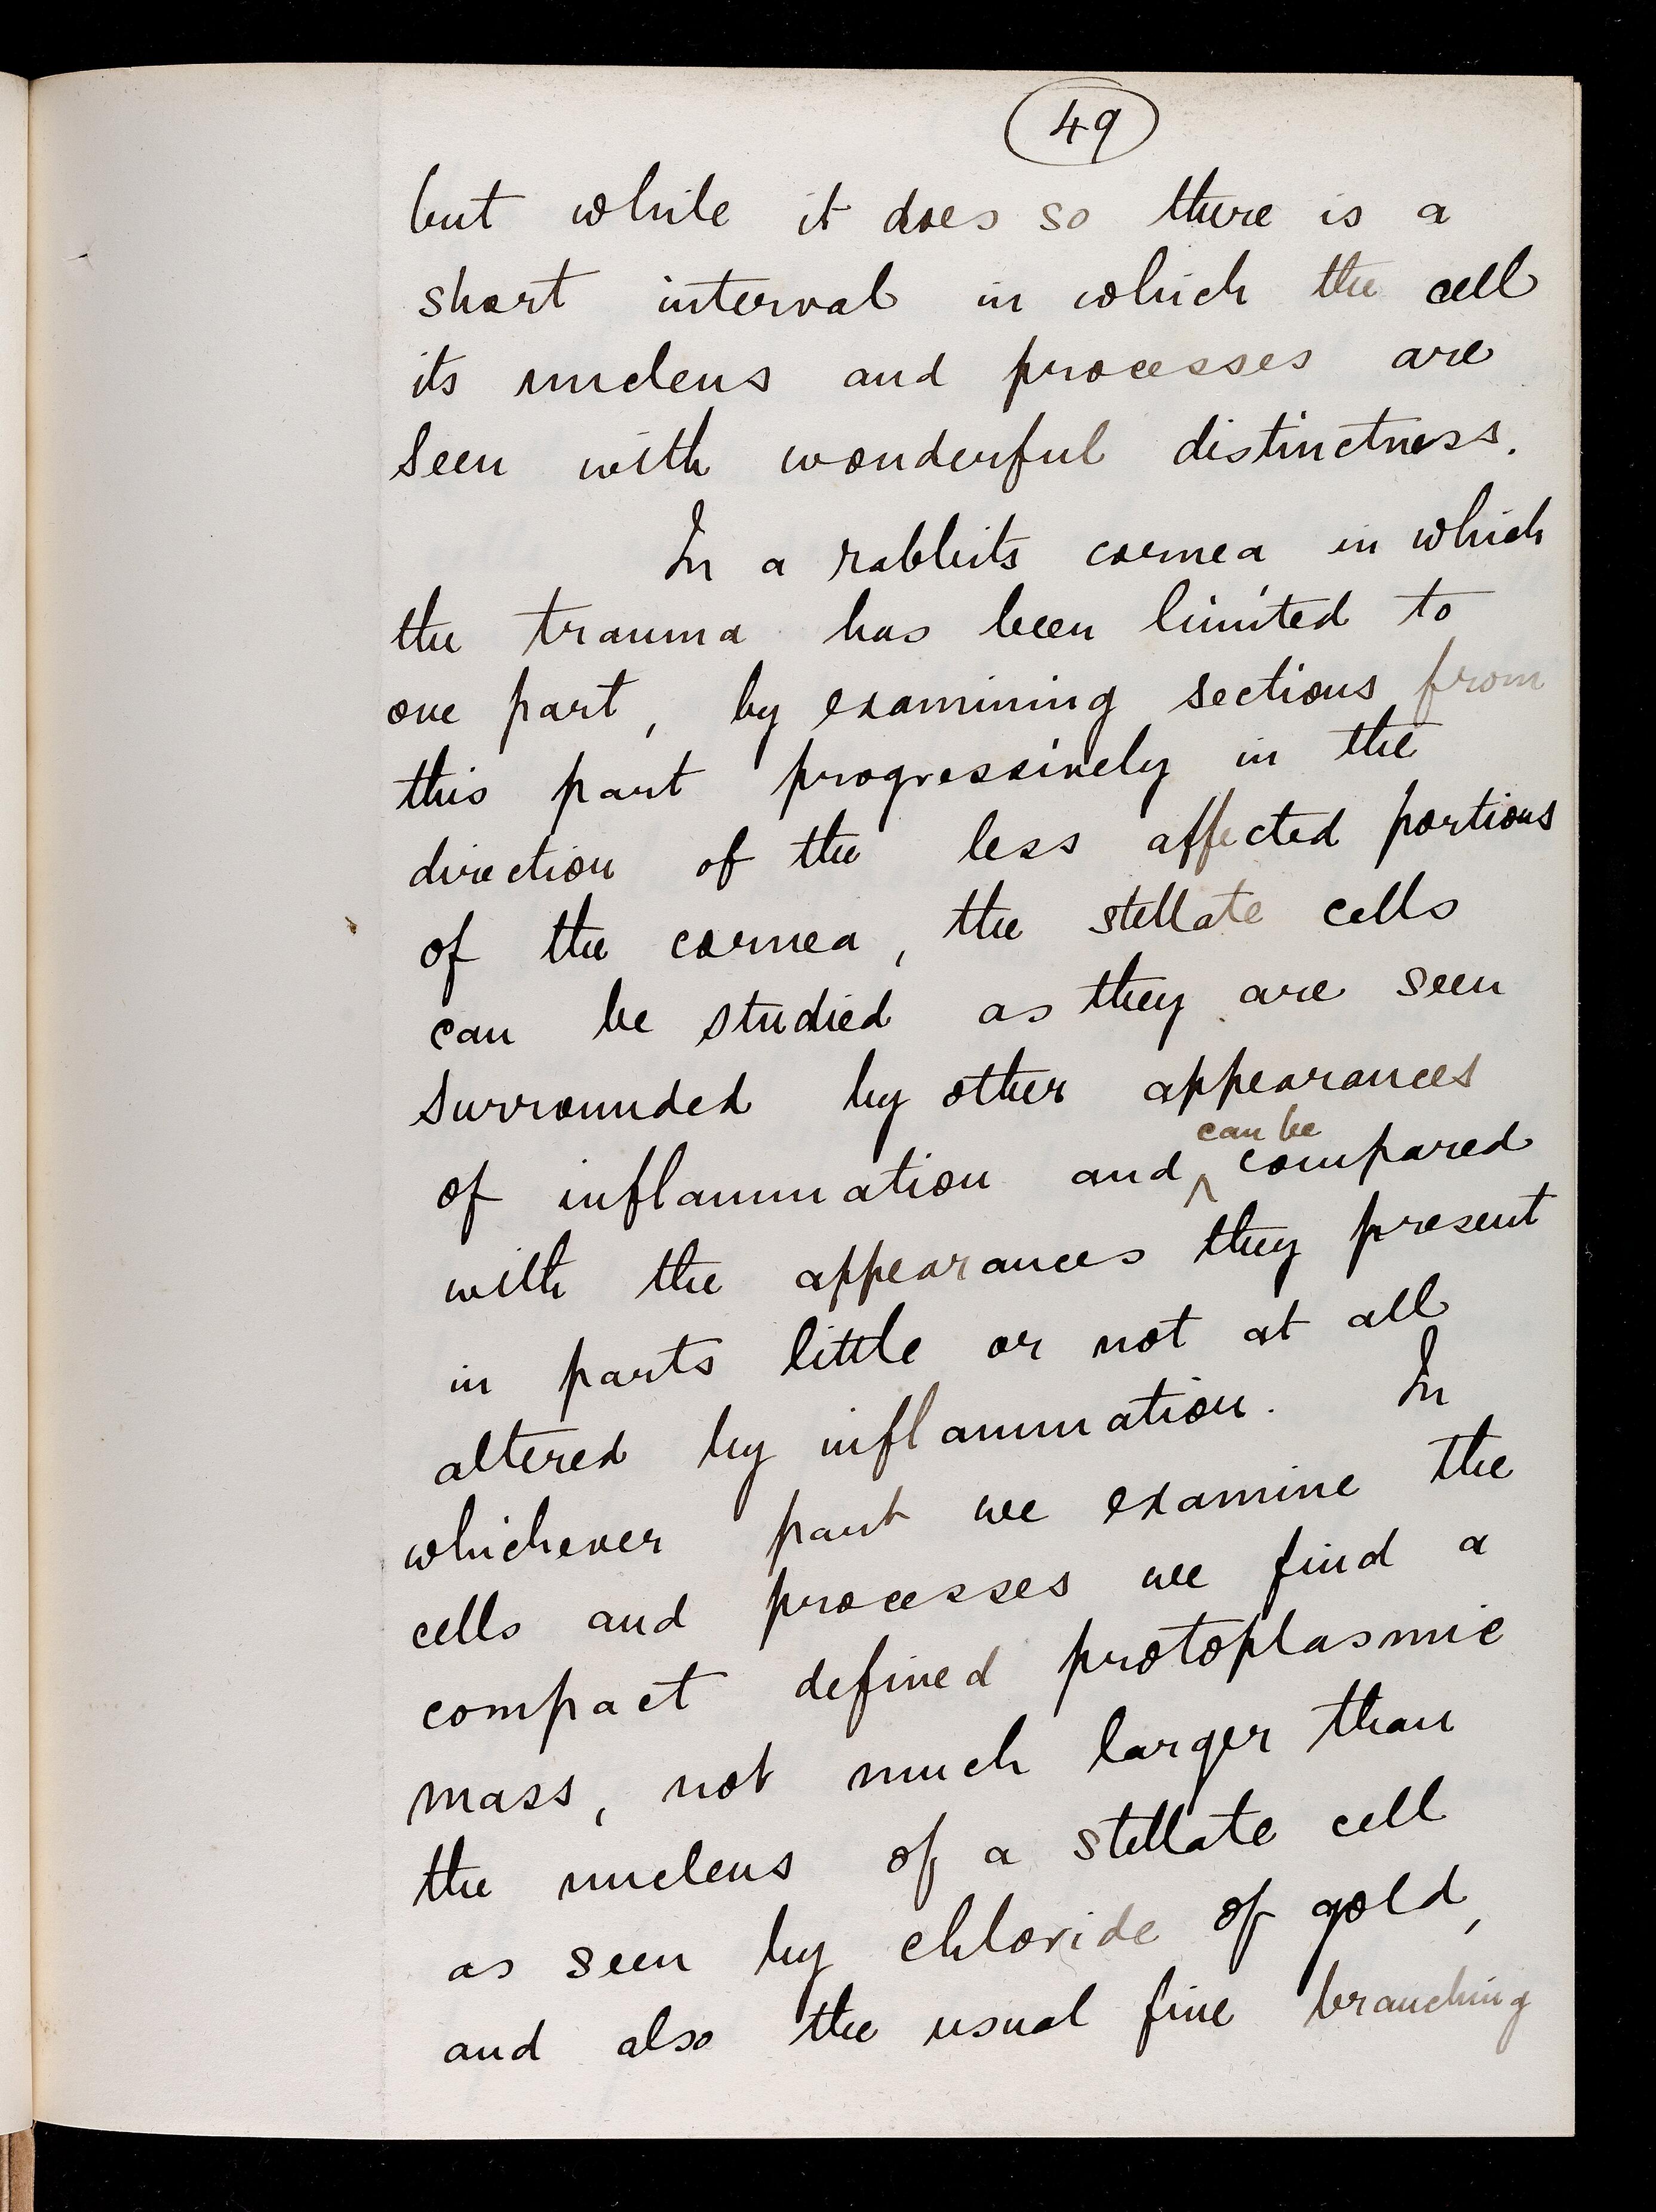 49
but while it does so there is a
short interval in which the cell
its nucleus and processes are
seen with wonderful distinctness.
In a rabbits cornea in which
the trauma has been limited to
one part, by examining sections from
this part progressively in the
direction of the less affected portions
of the cornea, the stellate cells
can be studied as they are seen
surrounded by other appearances
can be
of inflammation and ^ compared
with the appearances they present
in parts little or not at all
altered by inflammation. In
whichever part we examine the
cells and processes we find a
compact defined protoplasmic
mass, not much larger than
the nucleus of a stellate cell
as seen by chloride of gold,
and also the usual fine branching